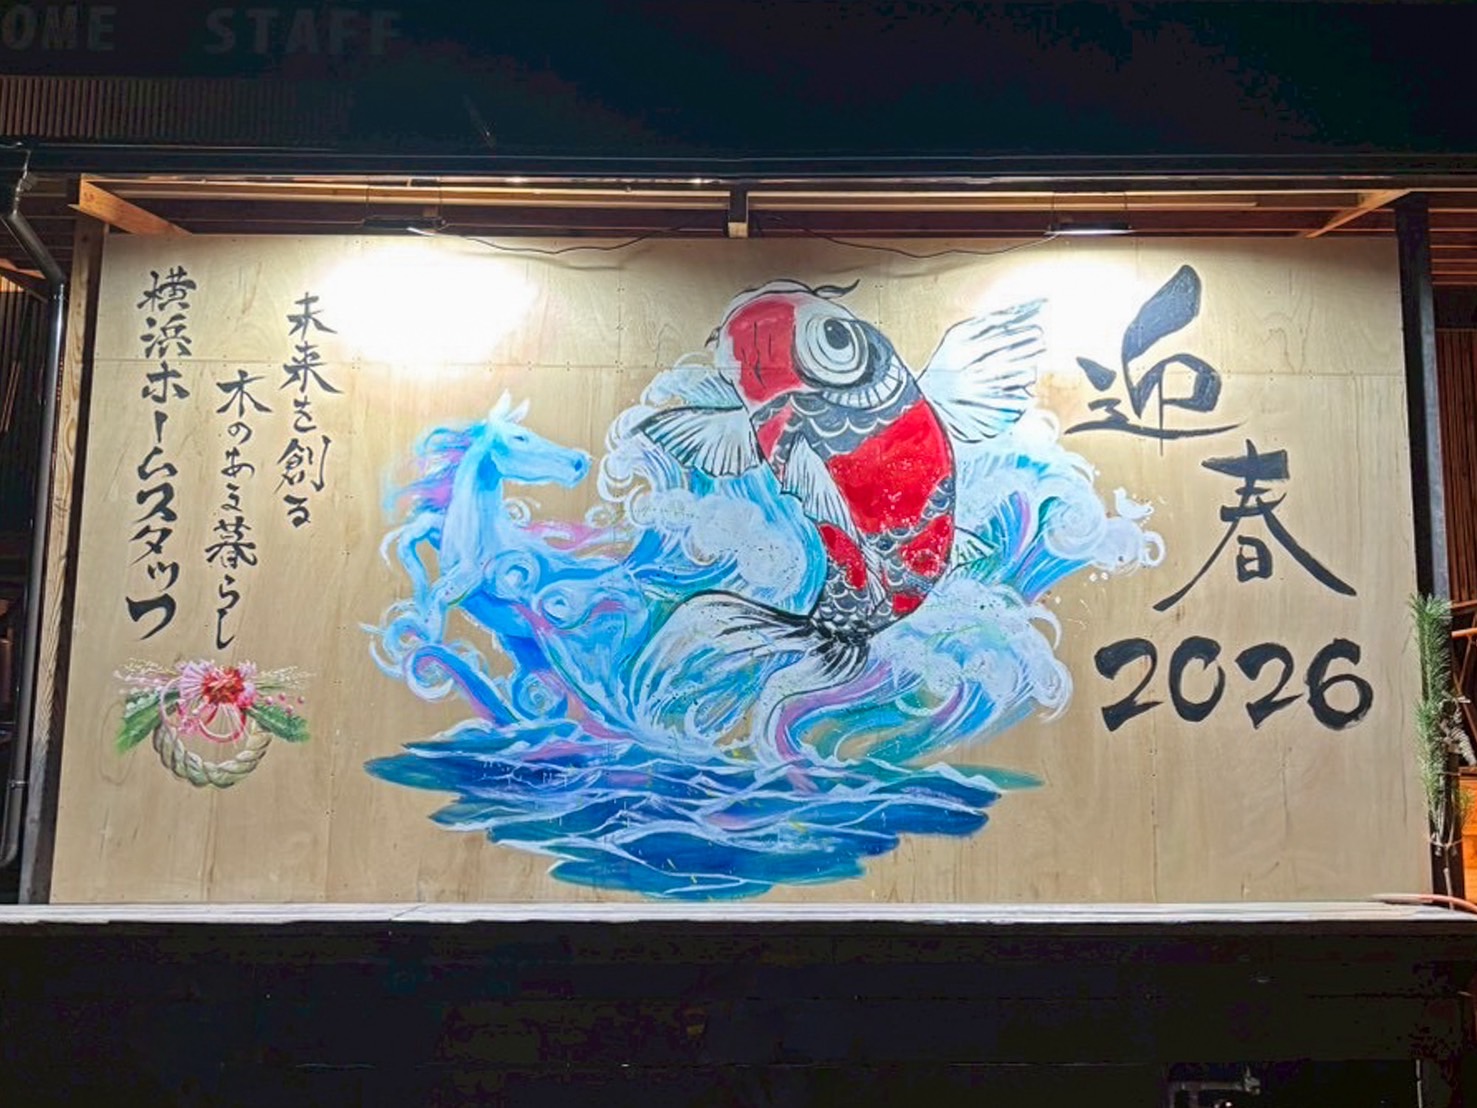 OME STAFF
迎
春
2026
未来を創る
木のある暮らし
横浜ホームスタッフ